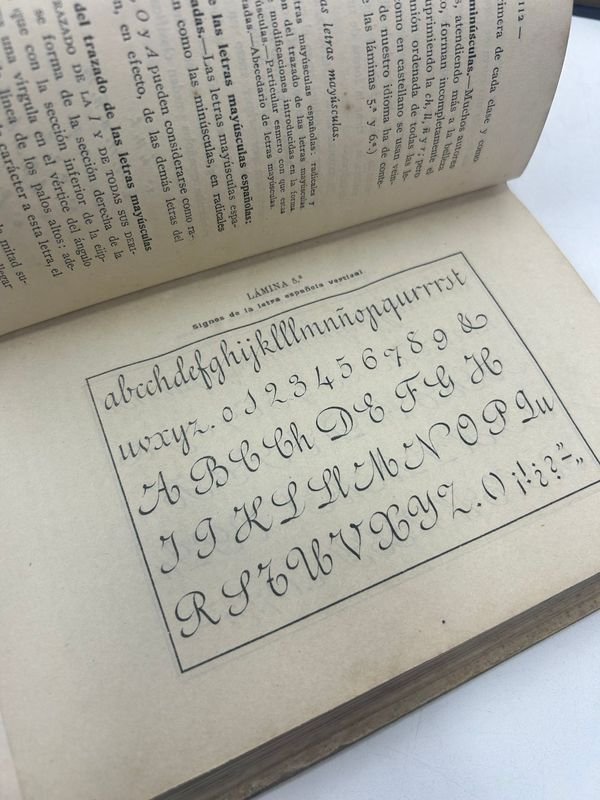 112 —
rimera de cada clase y como
minúsculas.—Muchos autores
s, atendiendo más a la belleza
o, forman incompletamente el
suprimiendo la ch, ll, ñ y r; pero
unión ordenada de todas las le-
como en castellano se usan vein-
de nuestro idioma ha de conte-
e las láminas 5.ª y 6.ª)
as letras mayúsculas.
tras mayúsculas españolas, radicales y
ón del trazado de las letras mayúsculas
e modificaciones introducidas en la forma
úsculas.—Particular esmero con que estas
adas.—Abecedario de letras mayúsculas.
e las letras mayúsculas españolas:
adas.—Las letras mayúsculas espa-
en como las minúsculas, en radicales
O y A pueden considerarse como ra-
n, en efecto, de las demás letras del
del trazado de las letras mayúsculas
RAZADO DE LA I Y DE TODAS SUS DERI-
se forma de la sección derecha de la
que con la sección inferior de la elip-
s una vírgula en el vértice del ángulo
línea de los palos altos; ade-
carácter a esta letra, el
la mitad su-
llegar
LÁMINA 5.ª
Signos de la letra española vertical
abcchdefghijklllmnñopqurrrst
uvxyz. 0 1 2 3 4 5 6 7 8 9 &
A B C Ch D E F G H
I J K L Ll M N O P Qu
R S T U V X Y Z. () ¡!¿?"–„